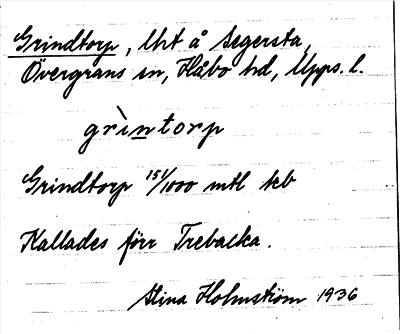 Grindtorp, lht å Segersta,
Övergrans sn, Håbo hd, Upps. l.
grìntorp
Grindtorp 151/1000 mtl
Kallades förr Trebacka.
Stina Holmström 1936